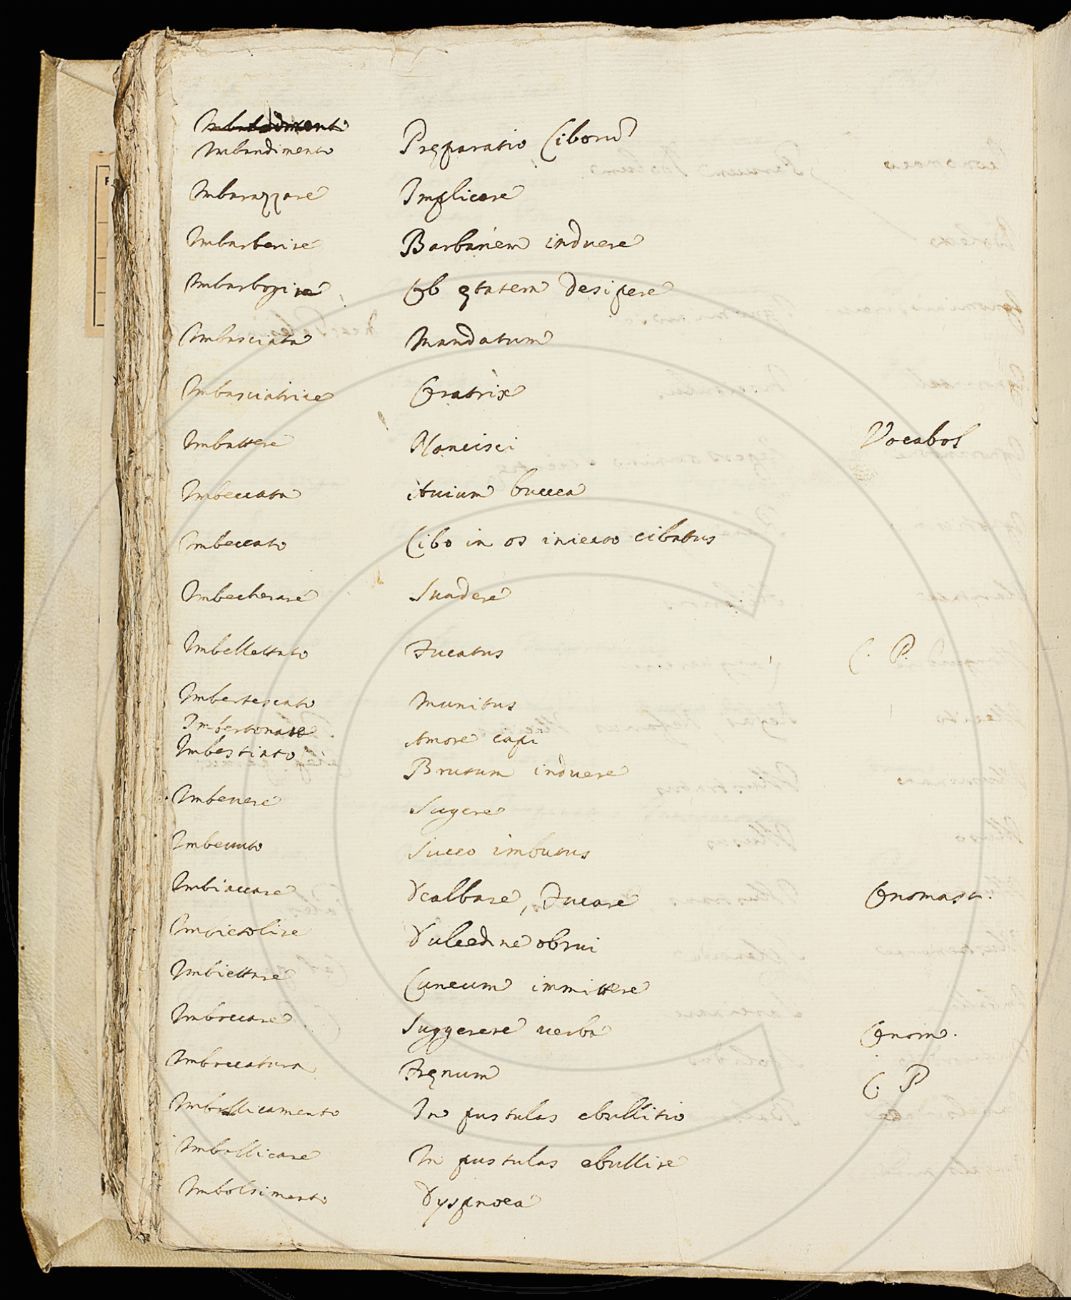 Imbandimento Preparatio Ciborũ
Imbarazzare Implicare
Imbarberire Barbariem induere
Imbarbogire Ob ętatem desipere
Imbasciata Mandatum
Imbasciatrice Oratrix
Imbattere Nancisci Vocabol
Imbeccata Avium buccea
Imbeccato Cibo in os iniecto cibatus
Imbecherare Suadere
Imbellettato Fucatus C. P.
Imbertescato Munitus
Imbertonare Amore capi
Imbestiato Brutum induere
Imbevere Sugere
Imbevuto Succo imbutus
Imbiaccare Dealbare, Fucare Onomast.
Imbietolire Dulcedine obrui
Imbiettare Cuneum immittere
Imboccare Suggerere verba Onom.
Imboccatura Fręnum C. P
Imbollicamento In pustulas ebullitio
Imbollicare In pustulas ebullire
Imbolsimento Dyspnoea